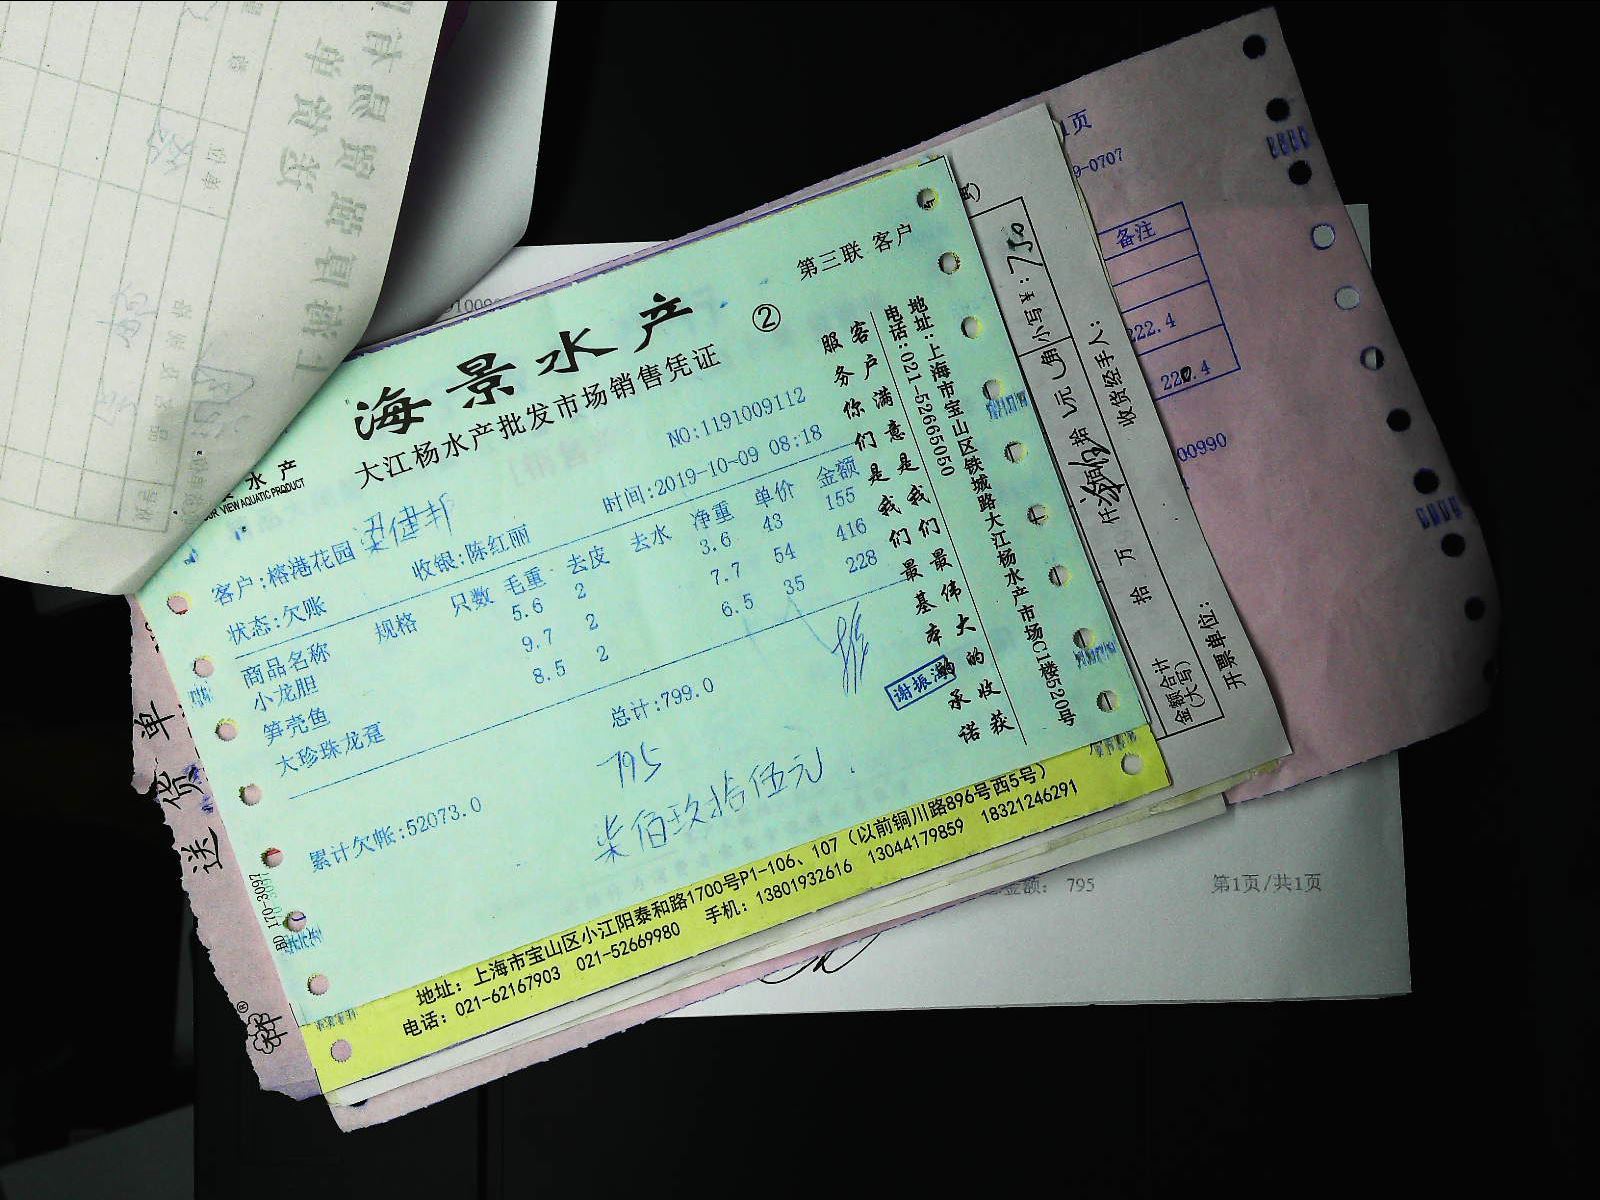 第三联 客户
海景水产
②
大江杨水产批发市场销售凭证
水产
VIEW AQUATIC PRODUCT
NO:1191009112
客户:榕港花园 梁健邦
时间:2019-10-09 08:18
状态:欠账 收银:陈红丽
商品名称 规格 只数 毛重 去皮 去水 净重 单价 金额
小龙胆 5.6 2 3.6 43 155
笋壳鱼 9.7 2 7.7 54 416
大珍珠龙趸 8.5 2 6.5 35 228
总计:799.0
795
柒佰玖拾伍元
累计欠帐:52073.0
客户满意是我们最伟大的收获
服务你们是我们最基本的承诺
地址:上海市宝山区铁城路大江杨水产市场C1楼520号
电话:021-52665050
地址：上海市宝山区小江阳泰和路1700号P1-106、107（以前铜川路896号西5号）
电话：021-62167903 021-52669980 手机：13801932616 13044179859 18321246291
BD 170-3097
送货单
1页
9-0707
备注
222.4
220.4
00990
小写¥:750
收货经手人:
金额合计
(大写)
拾 万
开票单位:
金额: 795
第1页/共1页